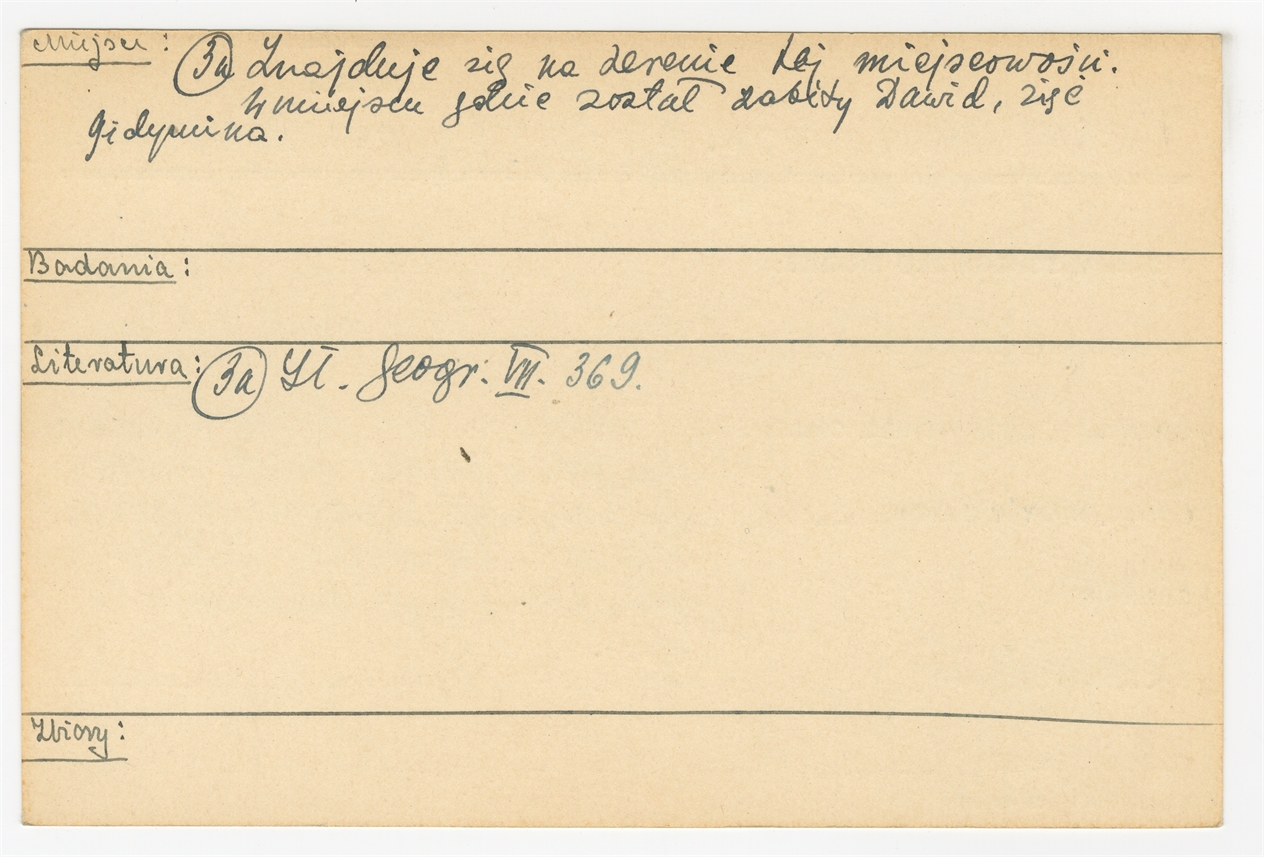 Miejsce: (3a) Znajduje się na terenie tej miejscowości.
W miejscu gdzie został zabity Dawid, zięć
Gidymina.
Badania:
Literatura: (3a) Sł. geogr. VII. 369.
Zbiory: